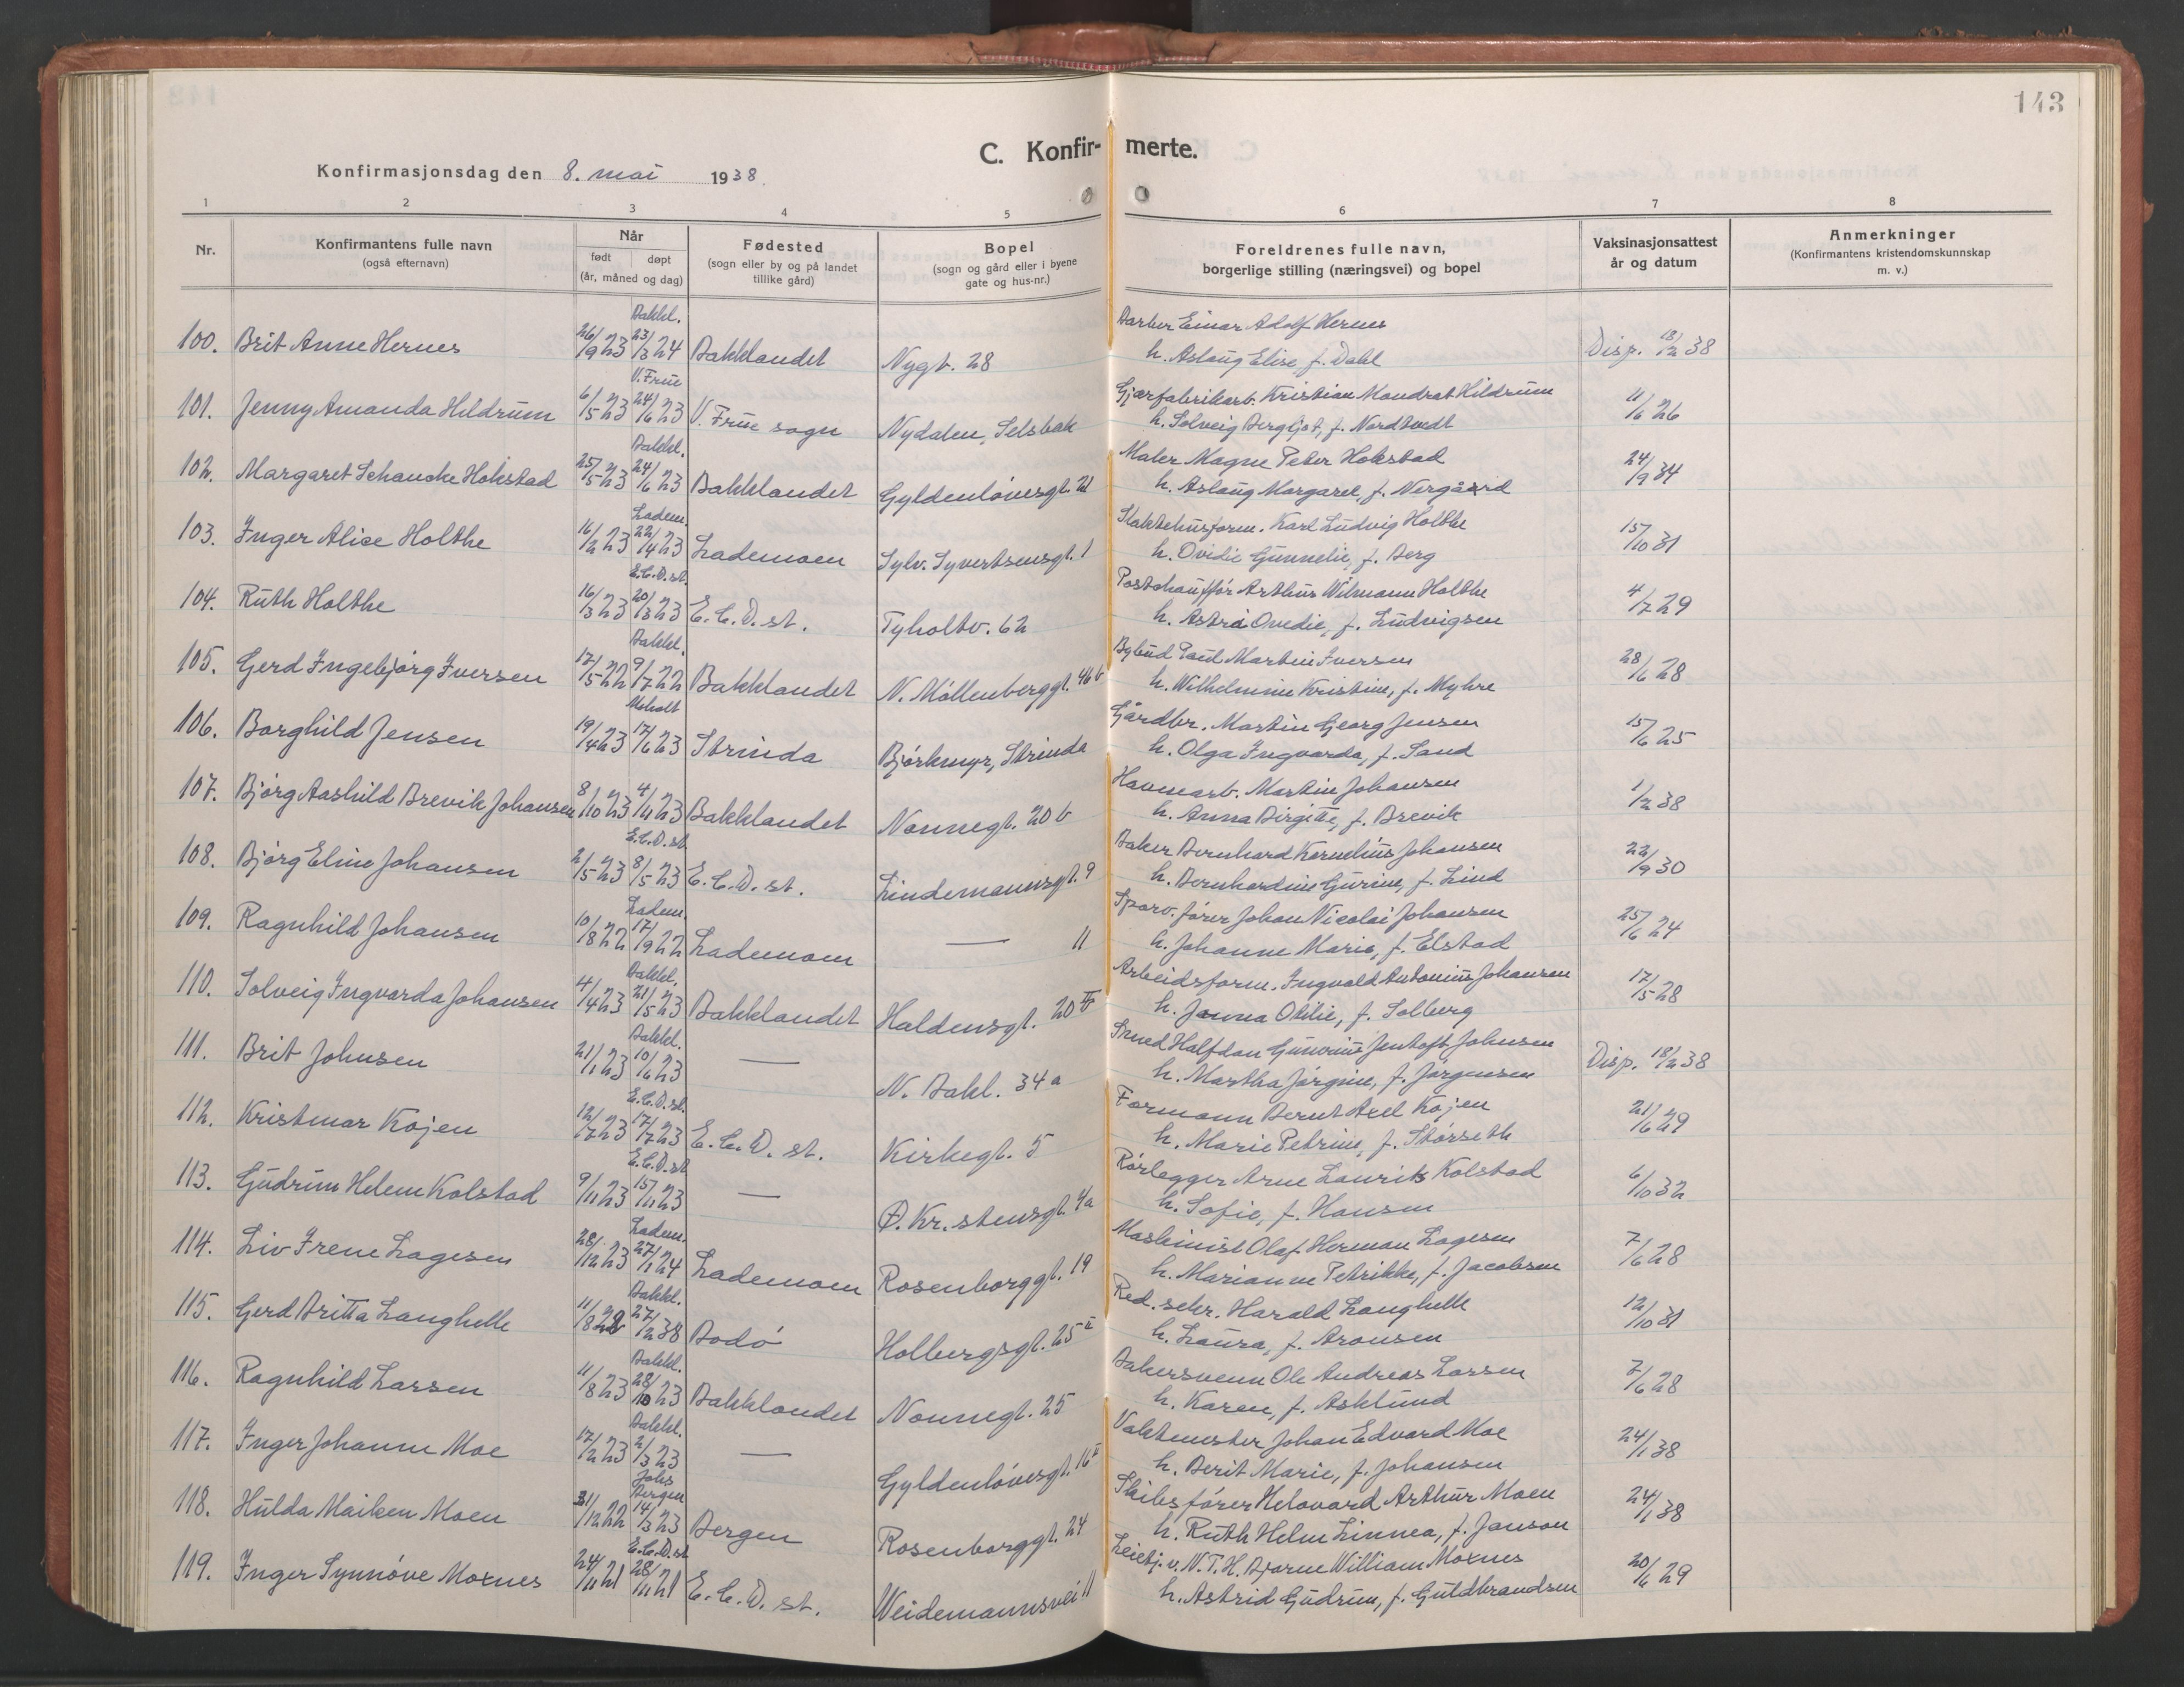 143
C. Konfirmerte.
Konfirmasjonsdag den 8. mai 1938.
1 2 3 4 5 6 7 8
Nr.
Konfirmantens fulle navn
(også efternavn)
Når
født døpt
(år, måned og dag)
Fødested
(sogn eller by og på landet
tillike gård)
Bopel
(sogn og gård eller i byene
gate og hus-nr.)
Foreldrenes fulle navn,
borgerlige stilling (næringsvei) og bopel
Vaksinasjonsattest
år og datum
Anmerkninger
(Konfirmantens kristendomskunnskap
m. v.)
Bakkl. Barber Einar Adolf Hernes
100. Brit Anne Hernes 26/9 23 23/3 24 Bakklandet Nygt. 28 h. Aslaug Elise f. Dahl Disp. 18/2 38
V. Frue Gjærfabrikarb. Kristian Mondrat Hildrum
101. Jenny Amanda Hildrum 6/5 23 24/6 23 V. Frue sogn Nydalen, Selsbak h. Solveig Bergljot, f. Nordtvedt 11/6 26
Bakkl. Maler Magne Peter Hokstad
102. Margaret Schancke Hokstad 25/5 23 24/6 23 Bakklandet Gyldenløvesgt. 21 h. Aslaug Margaret, f. Nergård 24/9 34
Ladem. Slaktehusform. Karl Ludvig Holthe
103. Inger Alice Holthe 16/2 23 22/4 23 Lademoen Sylv. Syvertsensgt. 1 h. Ovidie Gunnelie, f. Berg 15/10 31
E.C.D. st. Postchauffør Arthur Wilmann Holthe
104. Ruth Holthe 16/3 23 20/3 23 E.C.D. st. Tyholtv. 62 h. Astrid Ovedie, f. Ludvigsen 4/7 29
Bakkl. Bybud Paul Martin Iversen
105. Gerd Ingebjørg Iversen 17/5 22 9/7 22 Bakklandet N. Møllenberggt. 46 b h. Wilhelmine Kristine, f. Myhre 28/6 28
Moholt Gårdbr. Martin Georg Jensen
106. Borghild Jensen 19/4 23 17/6 23 Strinda Bjørkmyr, Strinda h. Olga Ingvarda, f. Sand 15/6 25
Havnearb. Martin Johansen
107. Bjørg Aashild Brevik Johansen 8/10 23 4/11 23 Bakklandet Nonnegt. 20 b h. Anna Birgitte, f. Brevik 1/2 38
E.C.D. st. Baker Bernhard Kornelius Johansen
108. Bjørg Eline Johansen 2/5 23 8/5 23 E.C.D. st. Lindemannsgt. 9 h. Bernhardine Gurine, f. Lind 22/9 30
Ladem. Sporv. fører Johan Nicolai Johansen
109. Ragnhild Johansen 10/8 22 17/9 22 Lademoen — 11 h. Johanne Marie, f. Elstad 25/6 24
Bakkl. Arbeidsform. Ingvald Antonius Johansen
110. Solveig Ingvarda Johansen 4/4 23 21/5 23 Bakklandet Haldensgt. 20 IV h. Janna Otilie, f. Solberg 17/5 28
Bakkl. Smed Halfdan Gunerius Jentoft Johnsen
111. Brit Johnsen 21/1 23 10/6 23 — N. Bakl. 34 a h. Martha Jørgine, f. Jørgensen Disp. 18/2 38
E.C.D. st. Formann Bernt Axel Kojen
112. Kristmar Kojen 12/7 23 17/7 23 E.C.D. st. Kirkegt. 5 h. Marie Petrine, f. Størseth 21/6 29
E.C.D. st. Rørlegger Arne Laurits Kolstad
113. Gudrun Helene Kolstad 9/11 23 15/11 23 — Ø. Kr. stensgt. 4a h. Sofie, f. Hansen 6/10 32
Ladem. Maskinist Olaf Herman Lagesen
114. Liv Irene Lagesen 28/12 23 27/1 24 Lademoen Rosenborggt. 19 h. Marianne Petrikke, f. Jacobsen 7/6 28
Bakkl. Red. sekr. Harald Langhelle
115. Gerd Britta Langhelle 11/8 22 27/2 38 Bodø Holbergsgt. 25 II h. Laura, f. Aronsen 12/10 31
Bakkl. Bakersvenn Ole Andreas Larsen
116. Ragnhild Larsen 11/8 23 28/10 23 Bakklandet Nonnegt. 25 h. Karen, f. Asklund 7/6 28
Bakkl. Vaktmester Johan Edvard Moe
117. Inger Johanne Moe 17/2 23 2/3 23 — Gyldenløvesgt. 16 II h. Berit Marie, f. Johansen 24/1 38
Johs Bergen Skibsfører Helovard Arthur Moen
118. Hulda Maiken Moen 31/12 22 14/3 23 Bergen Rosenborggt. 24 h. Ruth Helen Linnea, f. Janson 24/1 38
E.C.D. st v. N.T.H. Bjarne William Moxnes
119. Inger Synnøve Moxnes 24/11 21 28/11 21 E.C.D. st. Weidemannsvei 11 h. Astrid Gudrun, f. Guldbrandsen 20/6 29